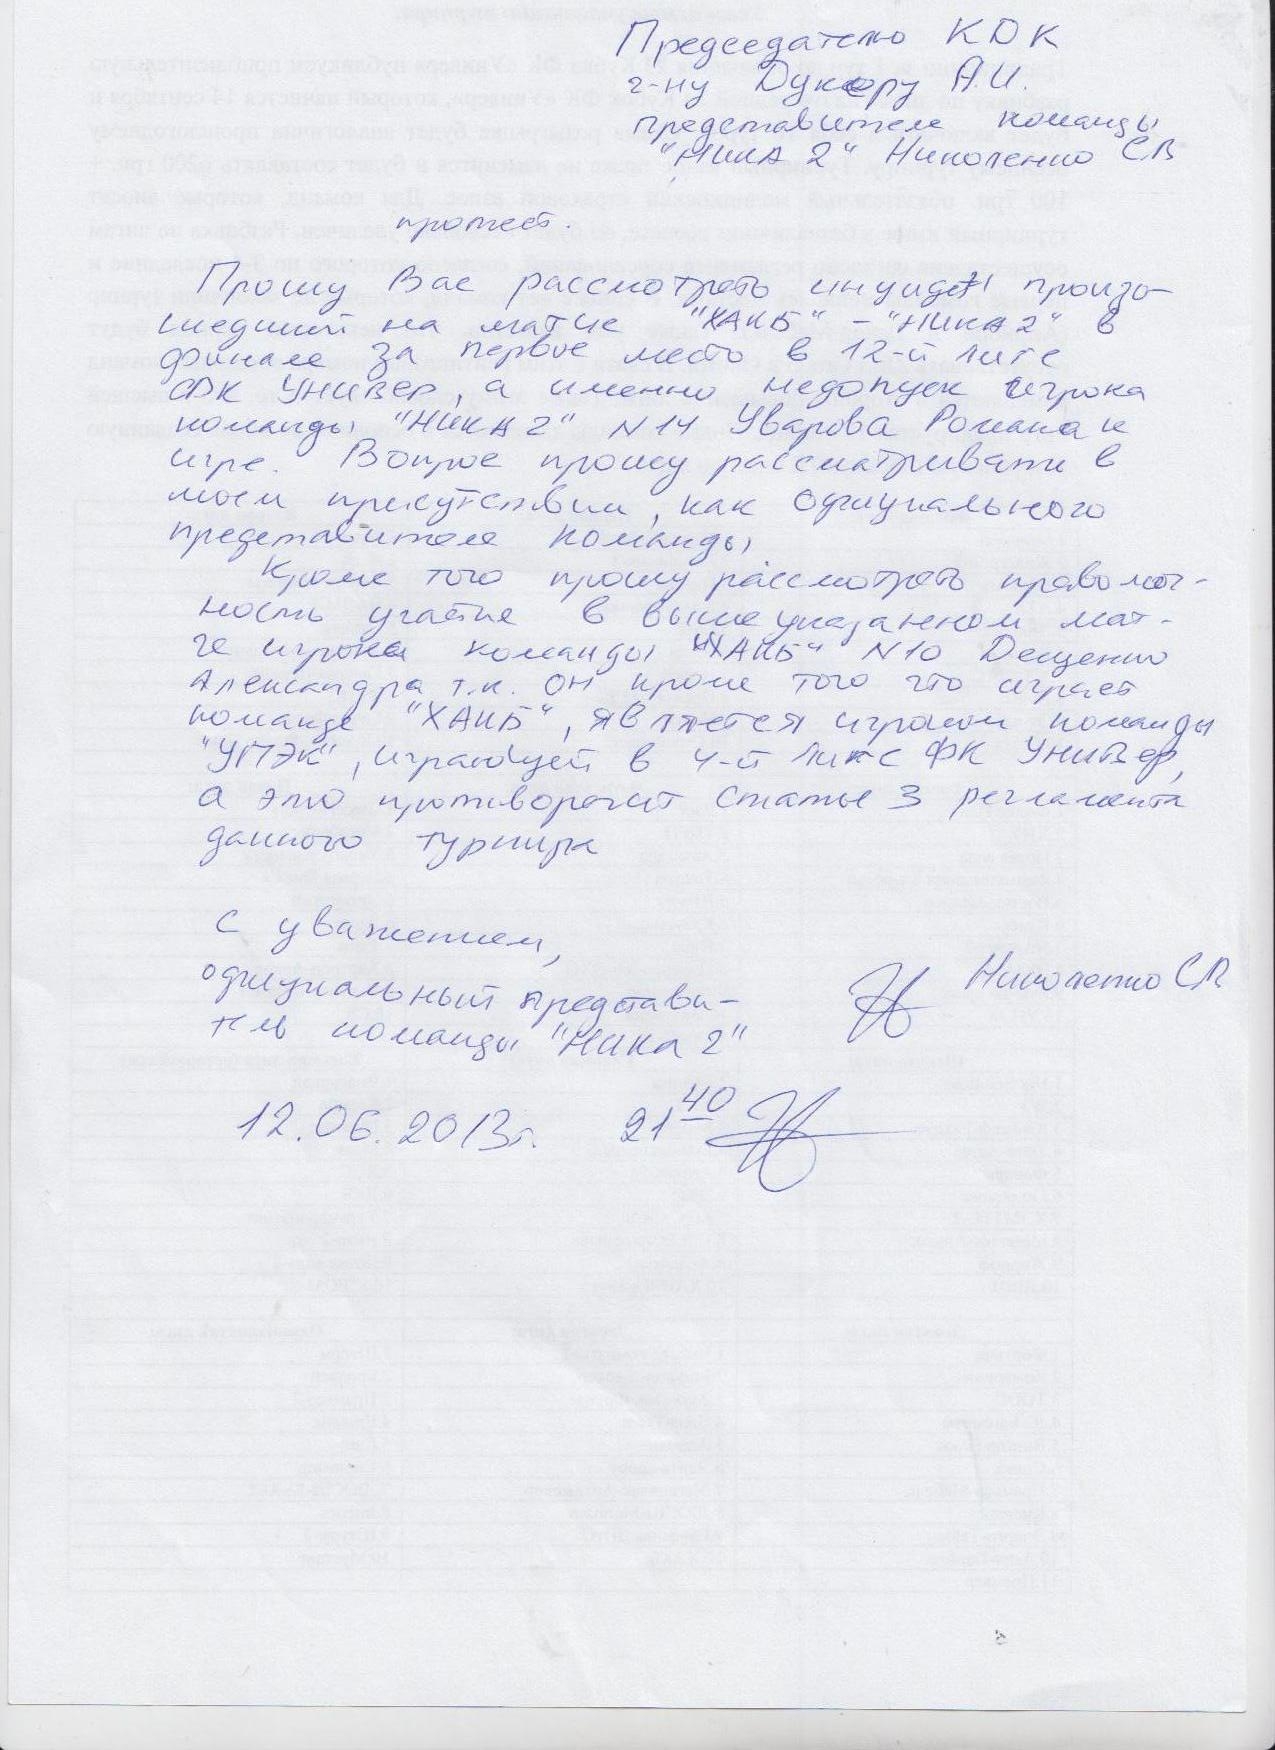 Председателю КДК
г-ну Дукеру А.И.
представителя команды
"НИКА 2" Николенко СВ
протест.
Прошу Вас рассмотреть инцидент произо-
шедший на матче "ХАКБ" - "НИКА 2" в
финале за первое место в 12-й лиге
ФК УНИВЕР, а именно недопуск игрока
команды "НИКА 2" N14 Уварова Романа к
игре. Вопрос прошу рассматривать в
моем присутствии, как официального
представителя команды
Кроме того прошу рассмотреть правомоч-
ность участия в вышеуказанном мат-
че игрока команды "ХАКБ" N10 Дещенко
Александра т.к. он кроме того что играет
команде "ХАКБ", является игроком команды
"УПЭК", играющей в 4-й лиге ФК УНИВЕР,
а это противоречит Статье 3 регламента
данного турнира
С уважением,
официальный представи-
тель команды "Ника 2"
Николенко СВ
12.06.2013г. 21 40